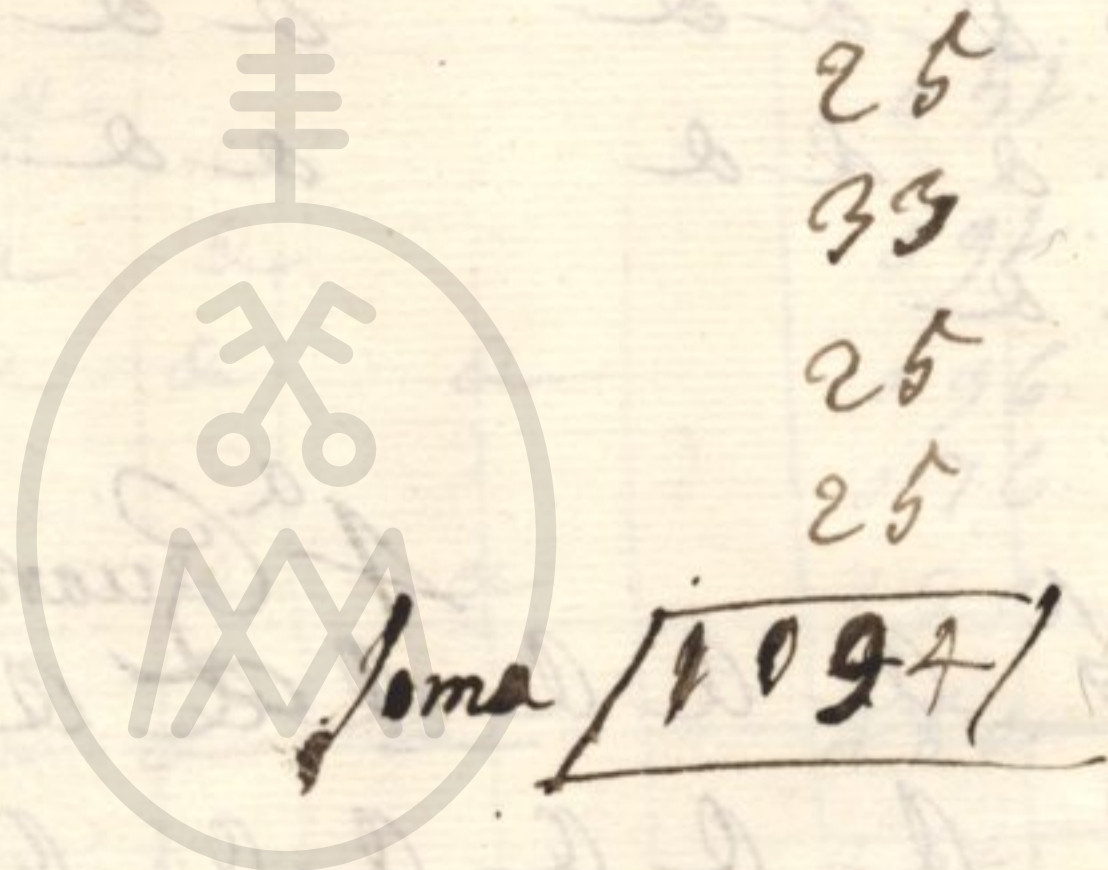 25
33
25
25
Soma 1094